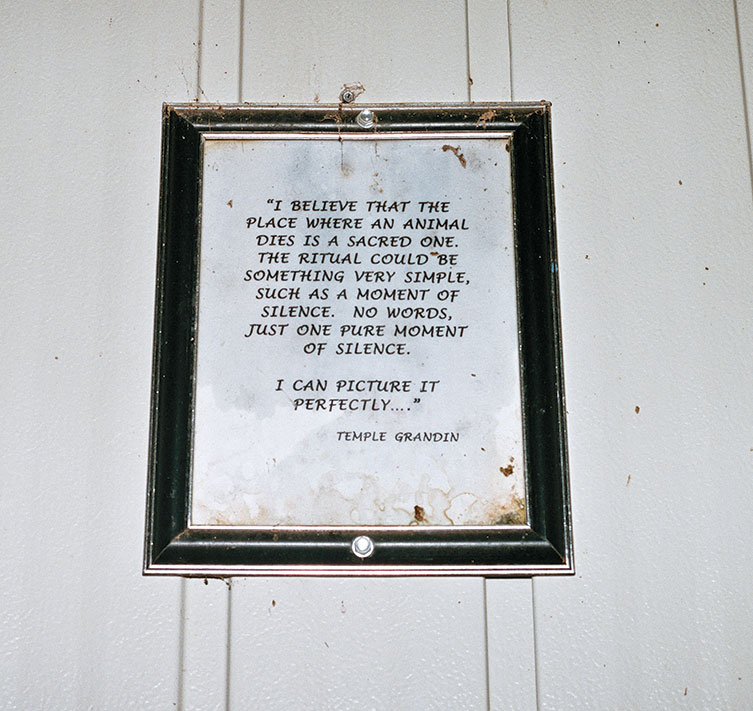 “I BELIEVE THAT THE
PLACE WHERE AN ANIMAL
DIES IS A SACRED ONE.
THE RITUAL COULD BE
SOMETHING VERY SIMPLE,
SUCH AS A MOMENT OF
SILENCE. NO WORDS,
JUST ONE PURE MOMENT
OF SILENCE.
I CAN PICTURE IT
PERFECTLY....”
TEMPLE GRANDIN